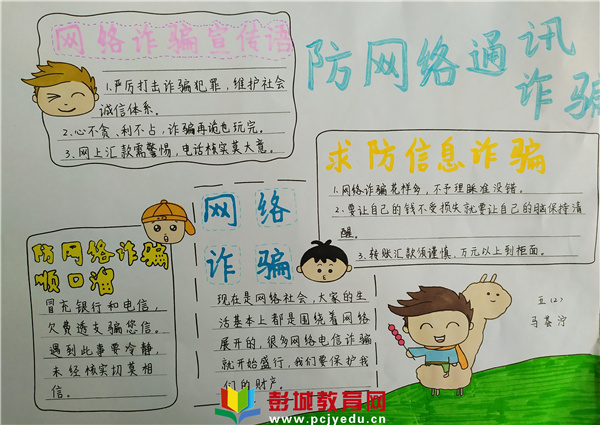 网络诈骗宣传语
1.严厉打击诈骗犯罪，维护社会
诚信体系。
2.心不贪、利不占，诈骗再诡也玩完。
3.网上汇款需警惕，电话核实莫大意。
防网络通讯
诈骗
求防信息诈骗
1.网络诈骗花样多，不予理睬准没错。
2.要让自己的钱不受损失就要让自己的脑保持清
醒。
3.转账汇款须谨慎，万元以上到柜面。
防网络诈骗
顺口溜
冒充银行和电信，
欠费透支骗您信。
遇到此事要冷静，
未经核实切莫相
信。
网络
诈骗
现在是网络社会，大家的生
活基本上都是围绕着网络
展开的，很多网络电信诈骗
就开始盛行，我们要保护我
们的财产。
五(2)
彭城教育网
www.pcjyedu.cn